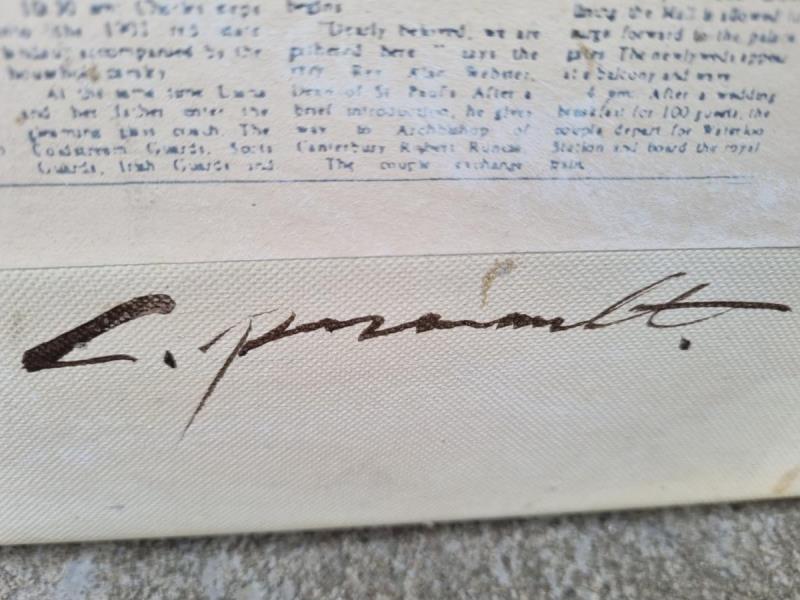 10.30 am: Charles steps
into the 1902 red state
landau, accompanied by the
household cavalry.
At the same time Diana
and her father enter the
gleaming glass coach. The
Coldstream Guards, Scots
Guards, Irish Guards and
begins.
"Dearly beloved, we are
gathered here " says the
very Rev Alan Webster,
Dean of St Paul's. After a
brief introduction, he gives
way to Archbishop of
Canterbury Robert Runcie.
The couple exchange
lining the Mall is allowed to
surge forward to the palace
gates. The newlyweds appear
at a balcony and wave.
4 pm: After a wedding
breakfast for 100 guests, the
couple depart for Waterloo
Station and board the royal
train.
C.